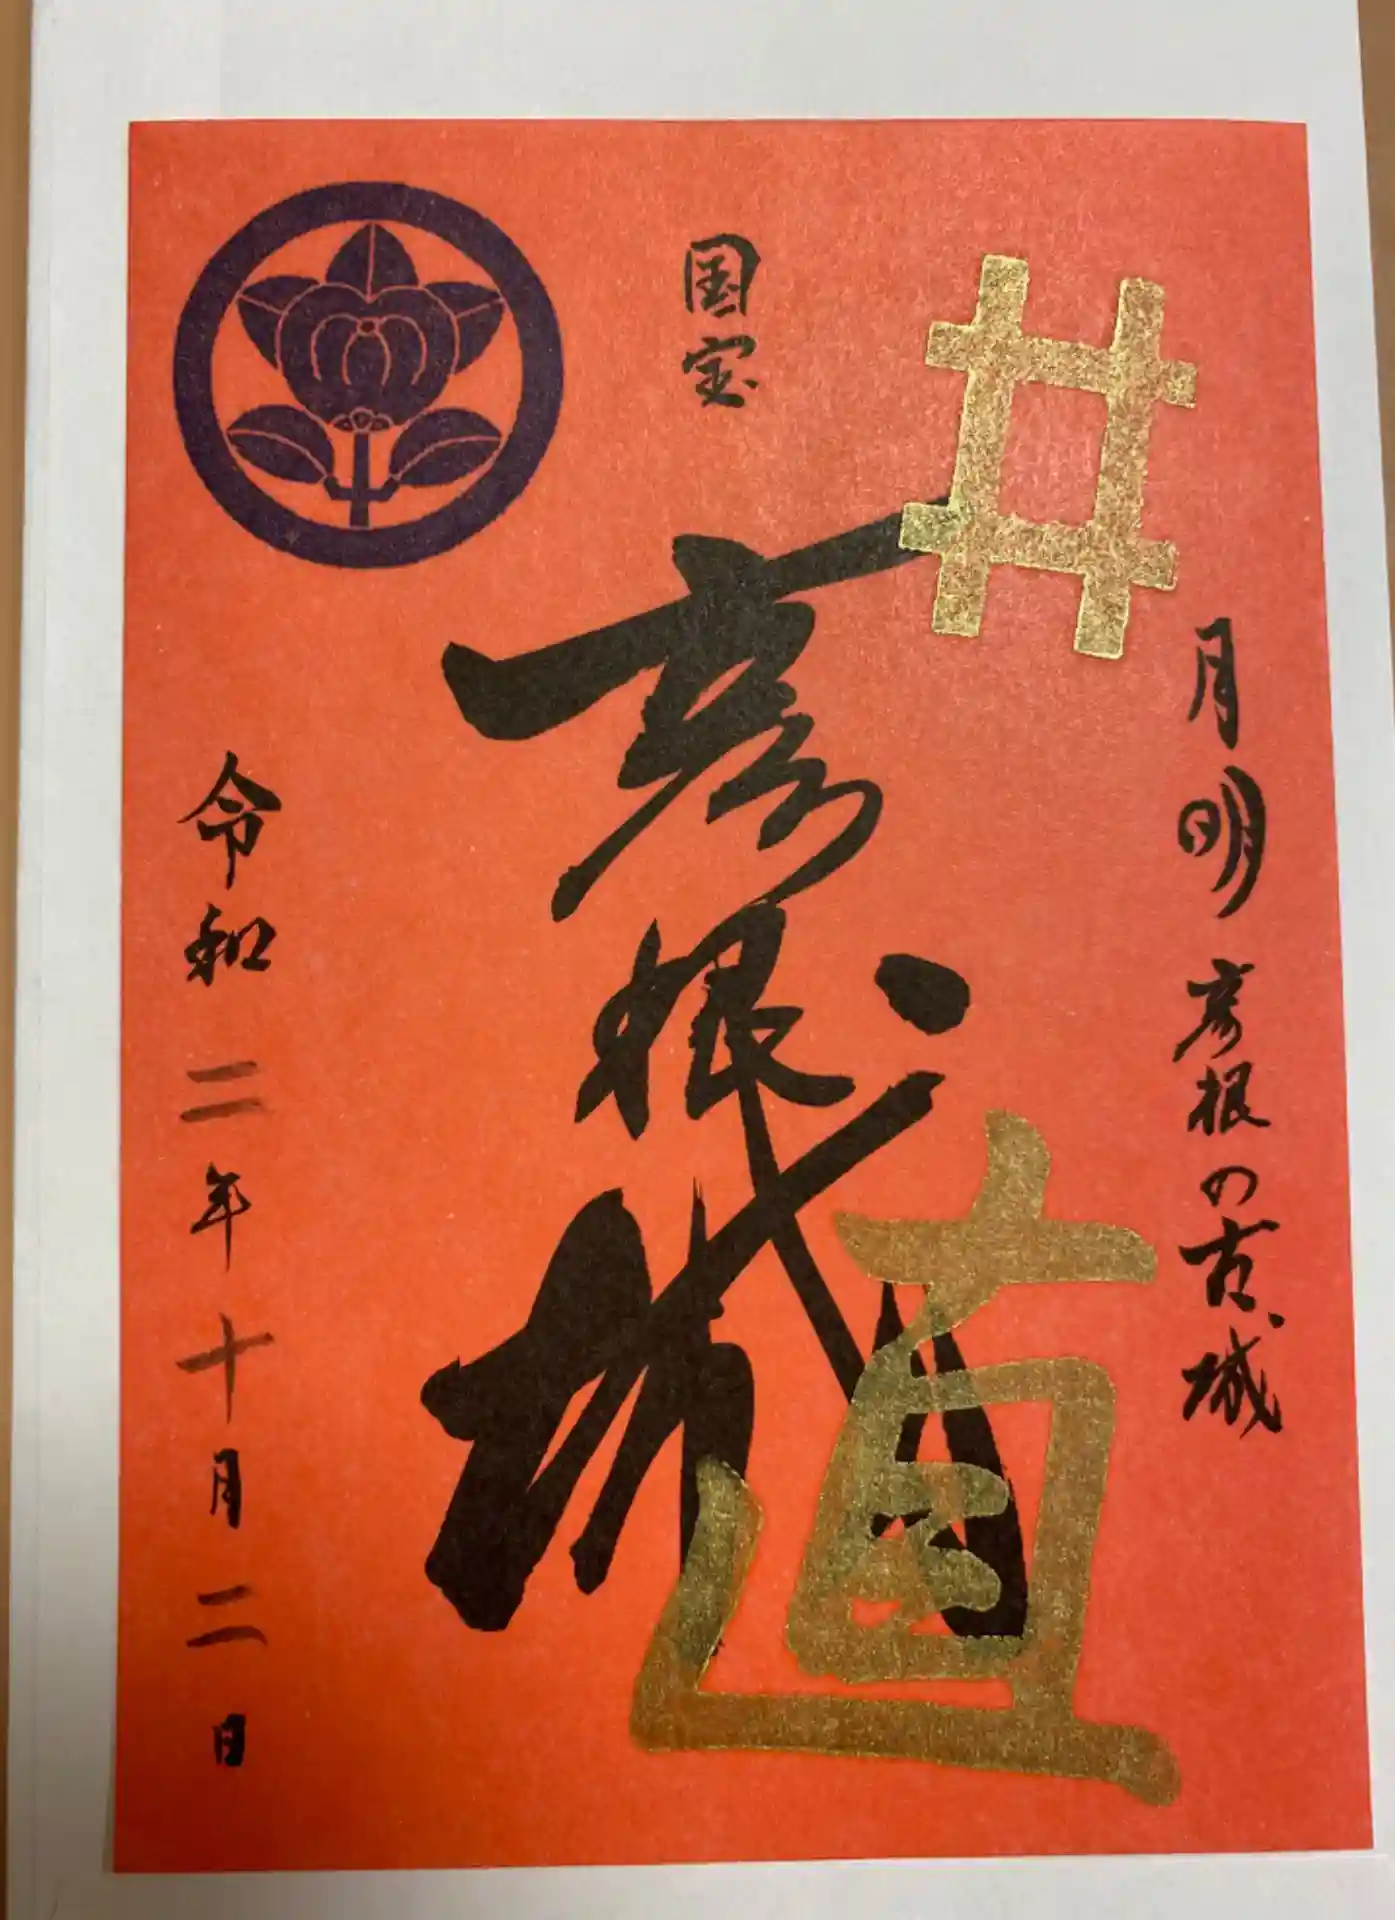 月明彦根の古城
井
直
国宝
彦根城
令和二年十月二日